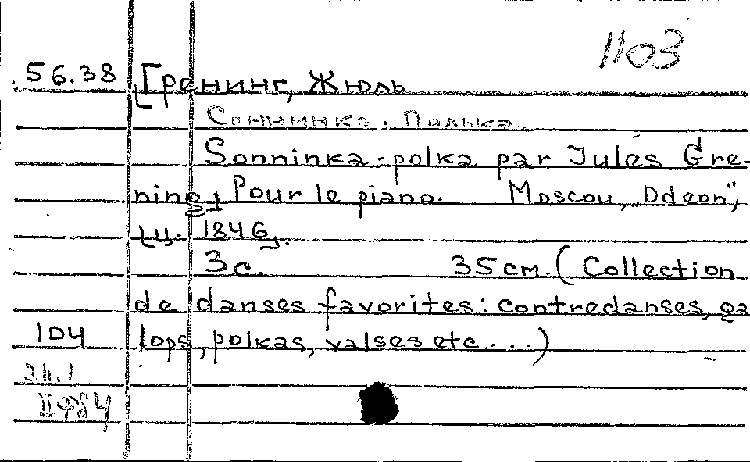 1103
56.38 [Гренинг, Жюль
Сонинка. Полька.
Sonninka-polka par Jules Gre-
ning, Pour le piano. Moscou, "Odeon",
ц. 1846,
3с. 35см (Collection
de danses favorites: contredanses, ga
104 lops, polkas, valses etc...)